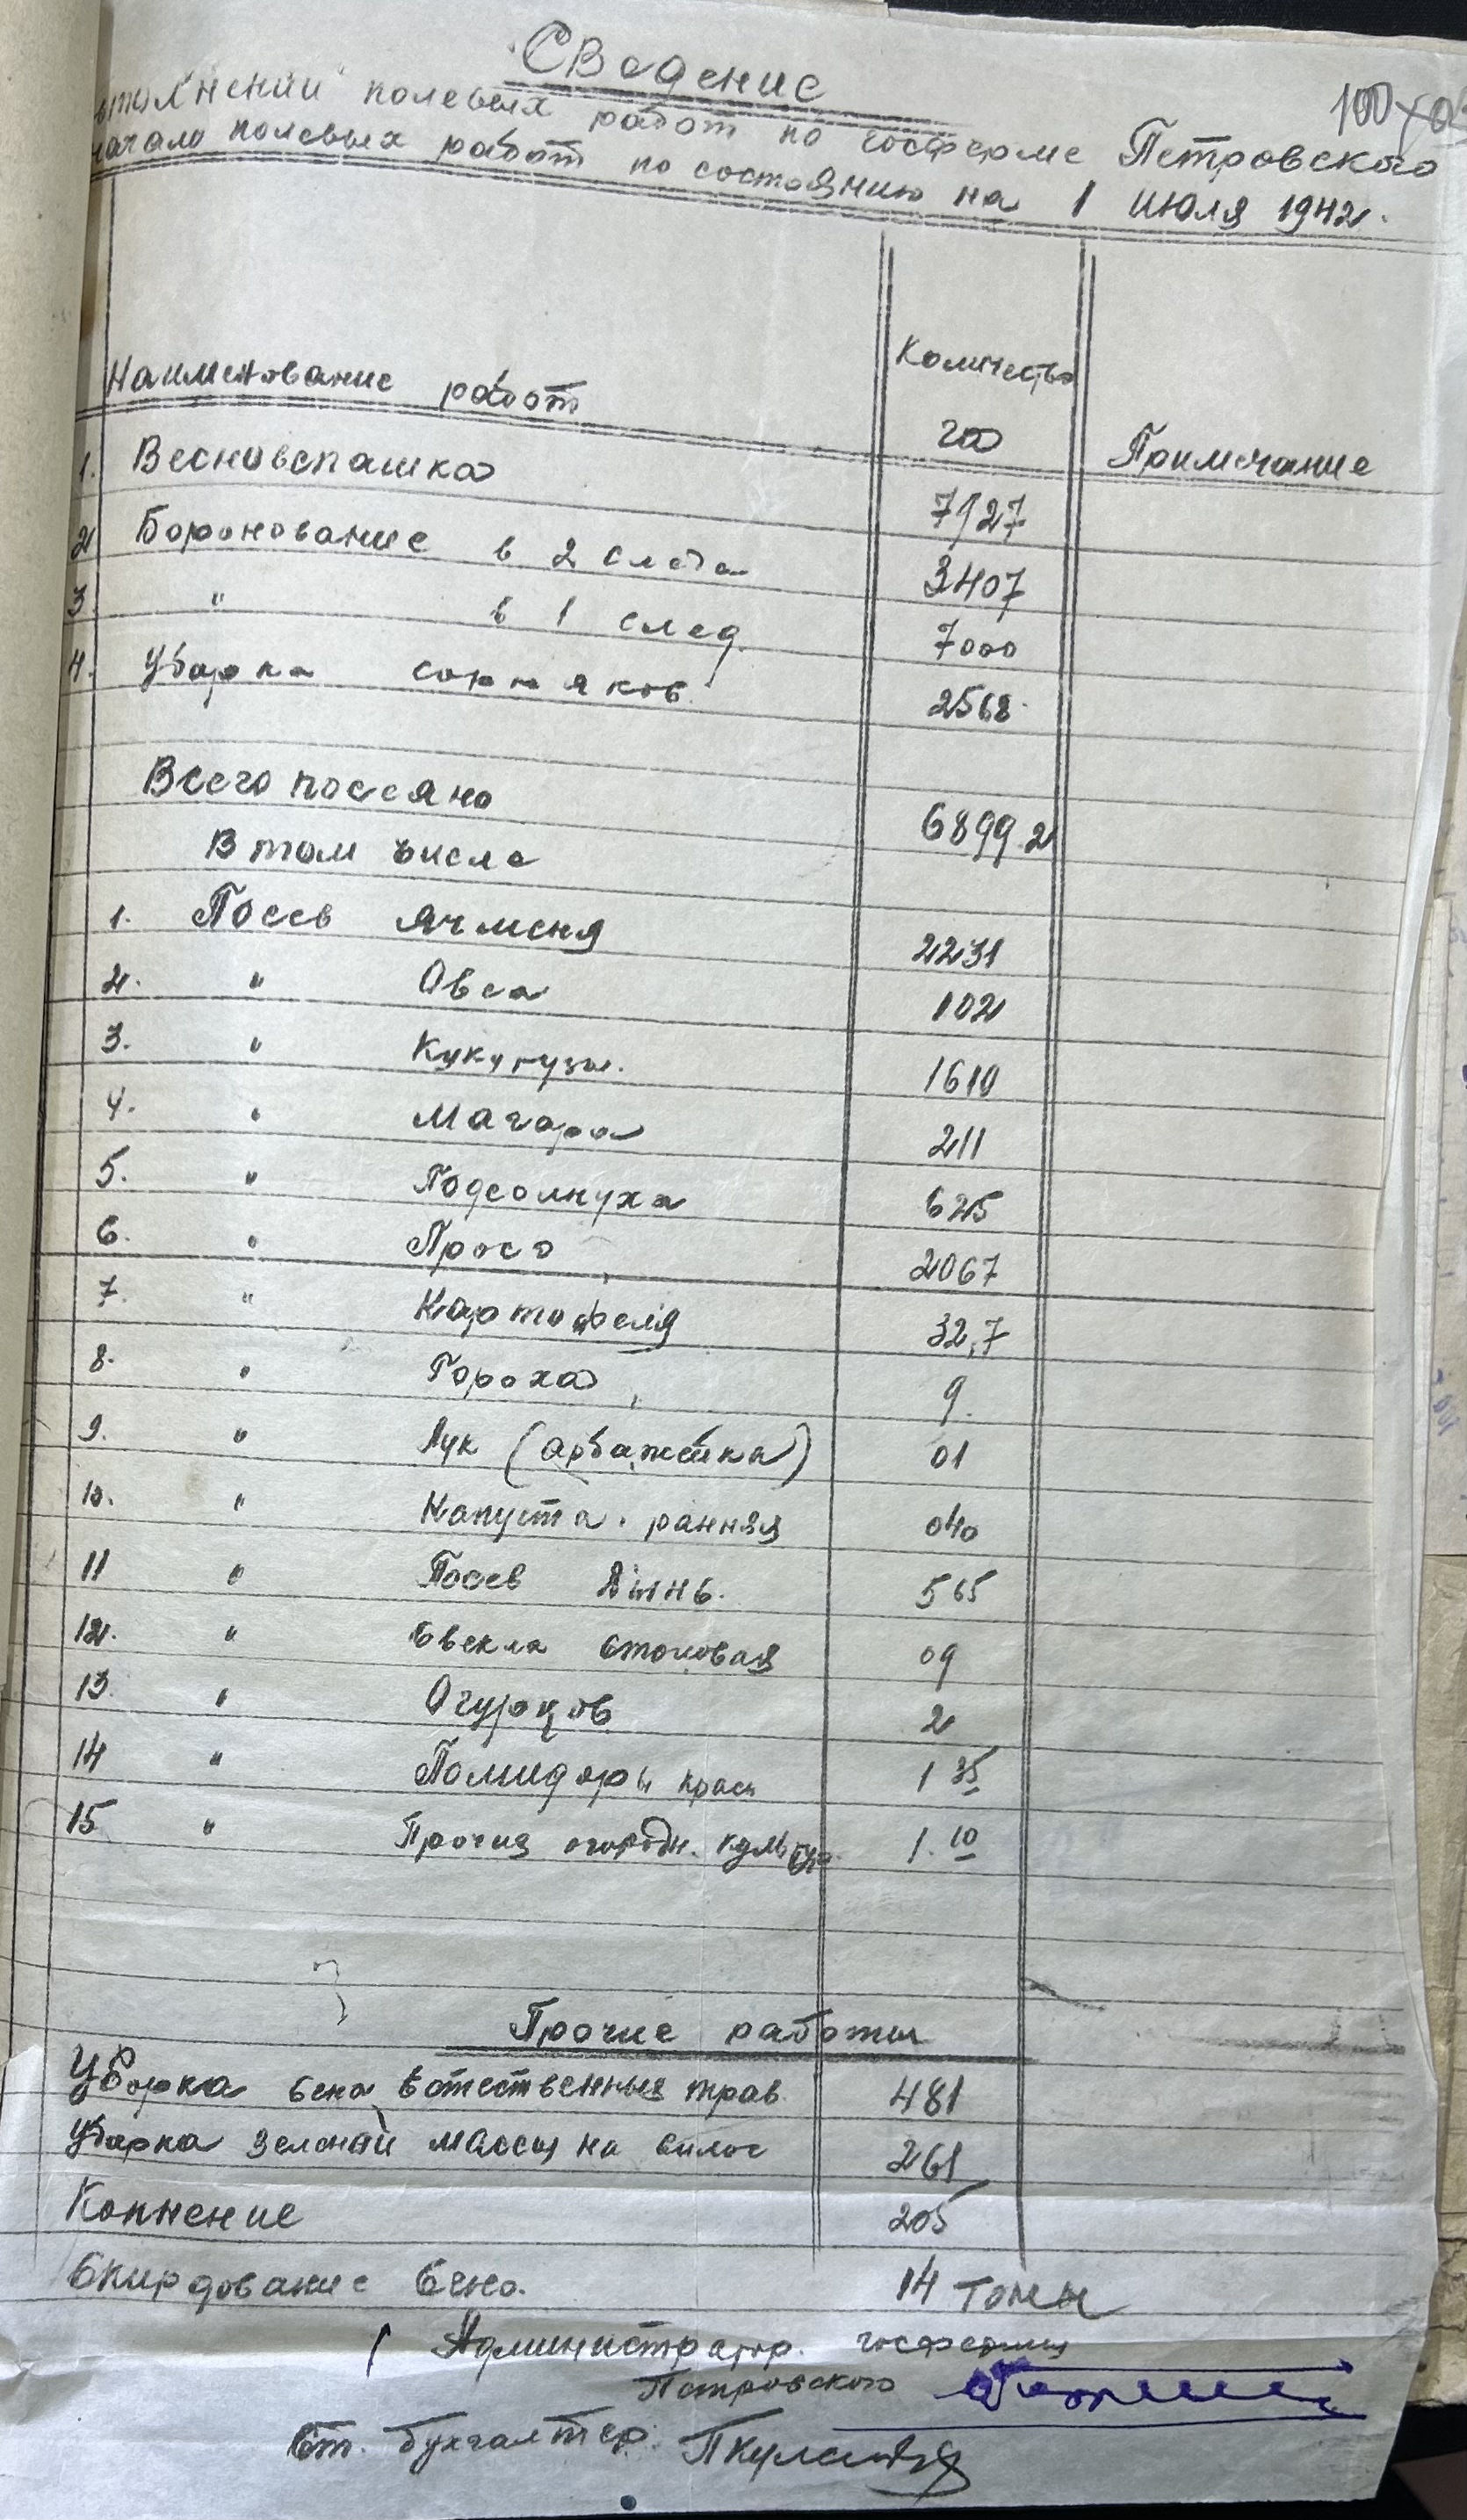 Сведение
выполнении полевых работ по госферме Петровского
начало полевых работ по состоянию на 1 июля 1942.
Наименование работ Количество га Примечание
1. Весновспашка 7127
2 Боронование в 2 следа 3407
3 " в 1 след. 7000
4. Уборка сорняков. 2568.
Всего посеяно 6899.2
В том числе
1. Посев ячменя 2231
2. " Овса 102
3. " Кукурузы. 1610
4. " Магара 211
5. " Подсолнуха 625
6. " Просо 2067
7. " Картофеля 32,7
8. " Гороха 9.
9. " Лук (арбажейка) 01
10. " Капуста. ранняя 040
11 " Посев дынь. 5 65
12. " Свекла столовая 09
13. " Огурцов 2
14 " Помидоры красн 1 35
15 " Прочия огородн. культур. 1. 10
Прочие работы
Уборка сена естественных трав 481
Уборка зеленой массы на силос 261
Копнение 205
Скирдование Сено. 14 тонн
Администратор. госфермы
Петровского
Ст. бухгалтер.